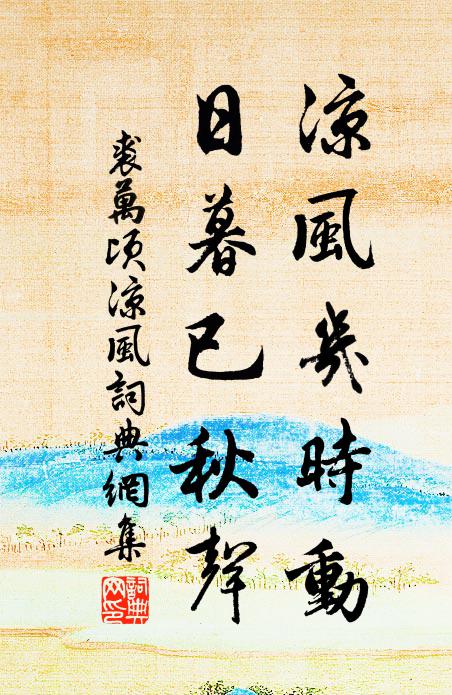 涼風幾時動
日暮已秋聲
裘萬頃涼風詞典網集
詞典網印